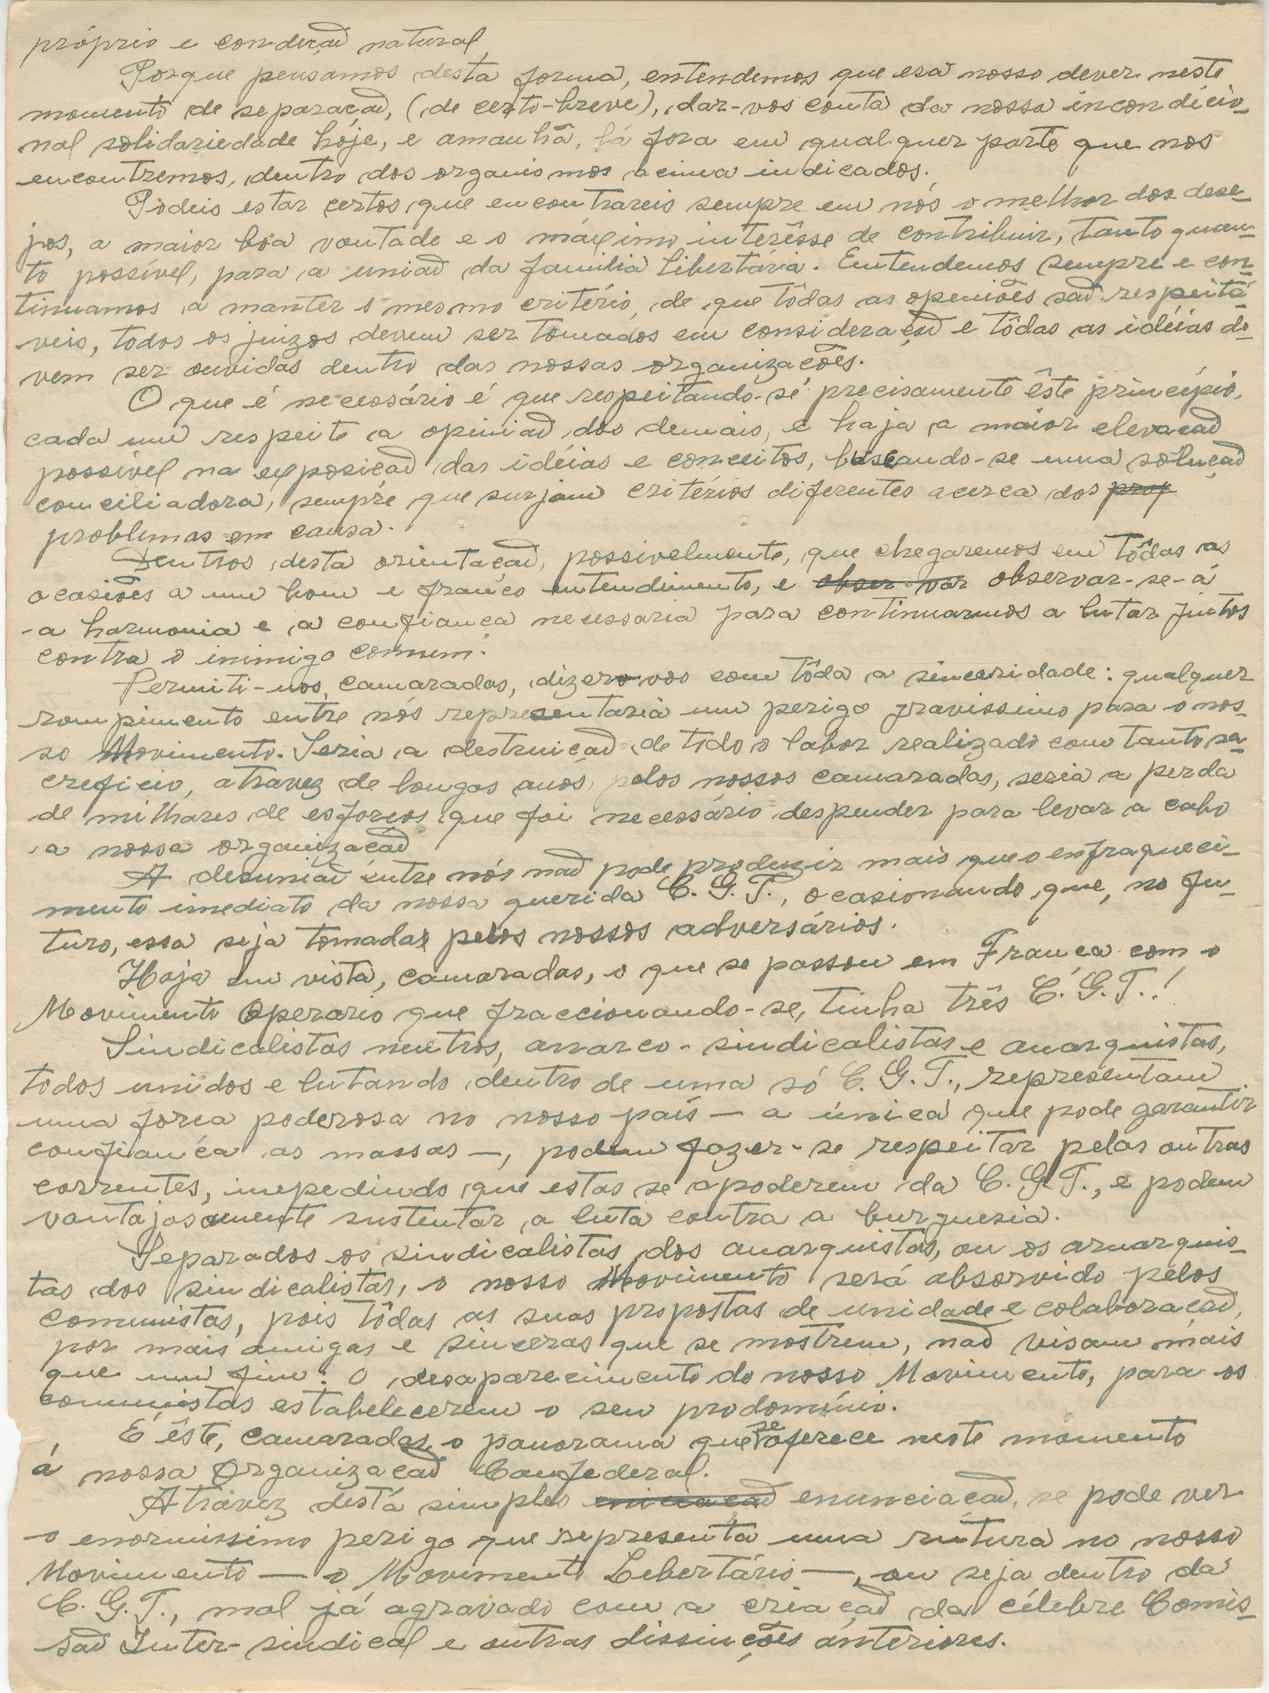 próprio e condição natural
Porque pensamos desta forma, entendemos que era nosso dever neste
momento de separação, (de certo-breve), dar-vos conta da nossa incondicio-
nal solidariedade hoje, e amanhã, lá fora em qualquer parte que nos
encontremos, dentro dos organismos acima indicados.
Podeis estar certos que encontrareis sempre em nós o melhor dos dese-
jos, a maior boa vontade e o máximo interêsse de contribuir, tanto quan-
to possível, para a união da família Libertária. Entendemos sempre e con-
tinuamos a manter o mesmo critério, de que tôdas as openiões são respeitá-
veis, todos os juizos devem ser tomados em consideração e tôdas as idéias de-
vem ser ouvidas dentro das nossas organizações.
O que é necessário é que respeitando-se precisamente êste princípio,
cada um respeite a openião dos demais, e haja a maior elevação
possível na exposição das idéias e conceitos, buscando-se uma solução
conciliadora, sempre que surjam critérios diferentes acerca dos prop
problemas em causa.
Dentros desta orientação, possivelmente, que chegaremos em tôdas as
ocasiões a um bom e franco entendimento, e obser-var observar-se-á
-a harmonia e a confiança necessaria para continuarmos a lutar juntos
contra o inimigo comum.
Permiti-nos, camaradas, dizer-vos com tôda a sinceridade: qualquer
rompimento entre nós representaria um perigo gravissimo para o nos-
so Movimento. Seria a destruição de todo o labor realizado com tanto sa-
creficio, atravez de longos anos, pelos nossos camaradas, seria a perda
de milhares de esforços que foi necessário despender para levar a cabo
a nossa organização
A desunião entre nós não pode produzir mais que o enfraqueci-
mento imediato da nossa querida C. G. T., ocasionando que, no fu-
turo, essa seja tomadas pelos nossos adversários.
Haja em vista, camaradas, o que se passou em França com o
Movimento Operario que fraccionando-se, tinha três C. G. T.!
Sindicalistas neutros, anarco-sindicalistas e anarquistas,
todos unidos e lutando dentro de uma só C. G. T., representam
uma força poderosa no nosso país — a única que pode garantir
confiança as massas —, podem fazer-se respeitar pelas outras
correntes, inpedindo que estas se apoderem da C. G. T., e podem
vantajosamente sustentar a luta contra a burguesia.
Separados os sindicalistas dos anarquistas, ou os anarquis-
tas dos sindicalistas, o nosso Movimento será absorvido pelos
comunistas, pois tôdas as suas propostas de unidade e colaboração,
por mais amigas e sinceras que se mostrem, não visam mais
que um fim: O desaparecimento do nosso Movimento, para os
comunistas estabelecerem o seu prodomínio.
É êste, camaradas, o panorama que se oferece neste momento
á nossa Organização Confederal.
Atravez desta simples enunciação, se pode ver
o enormissimo perigo que representa uma rutura no nosso
Movimento — o Movimento Lebertário —, ou seja dentro da
C. G. T., mal já agravado com a criação da célebre Comis-
são Inter-sindical e outras dissinções ánteriores.